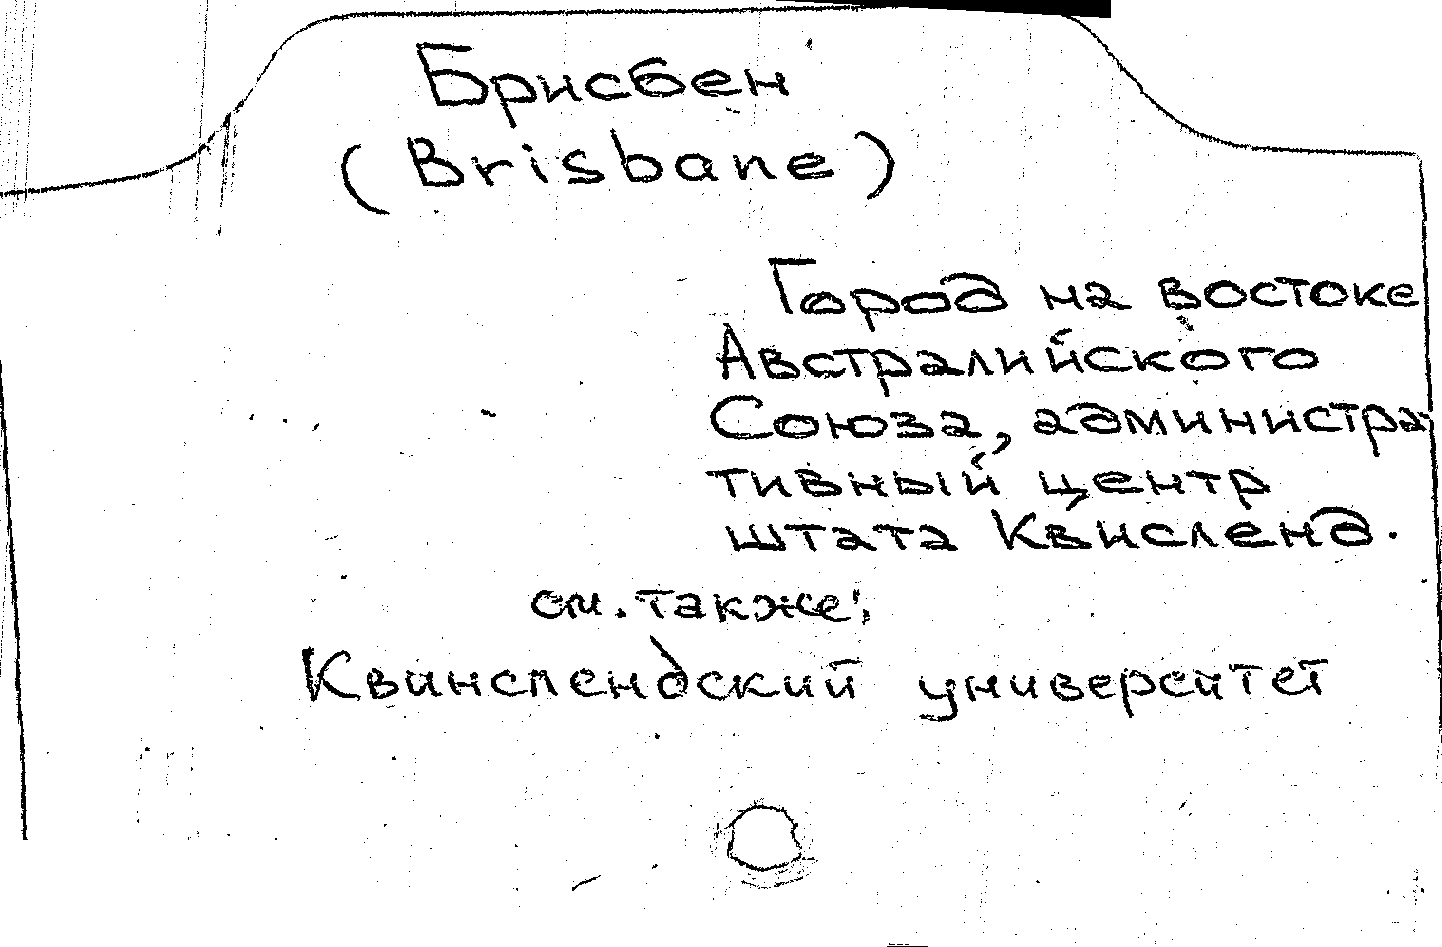 Брисбен
(Brisbane)
Город на востоке
Австралийского
Союза, администра-
тивный центр
штата Квисленд.
см. также:
Квинслендский университет